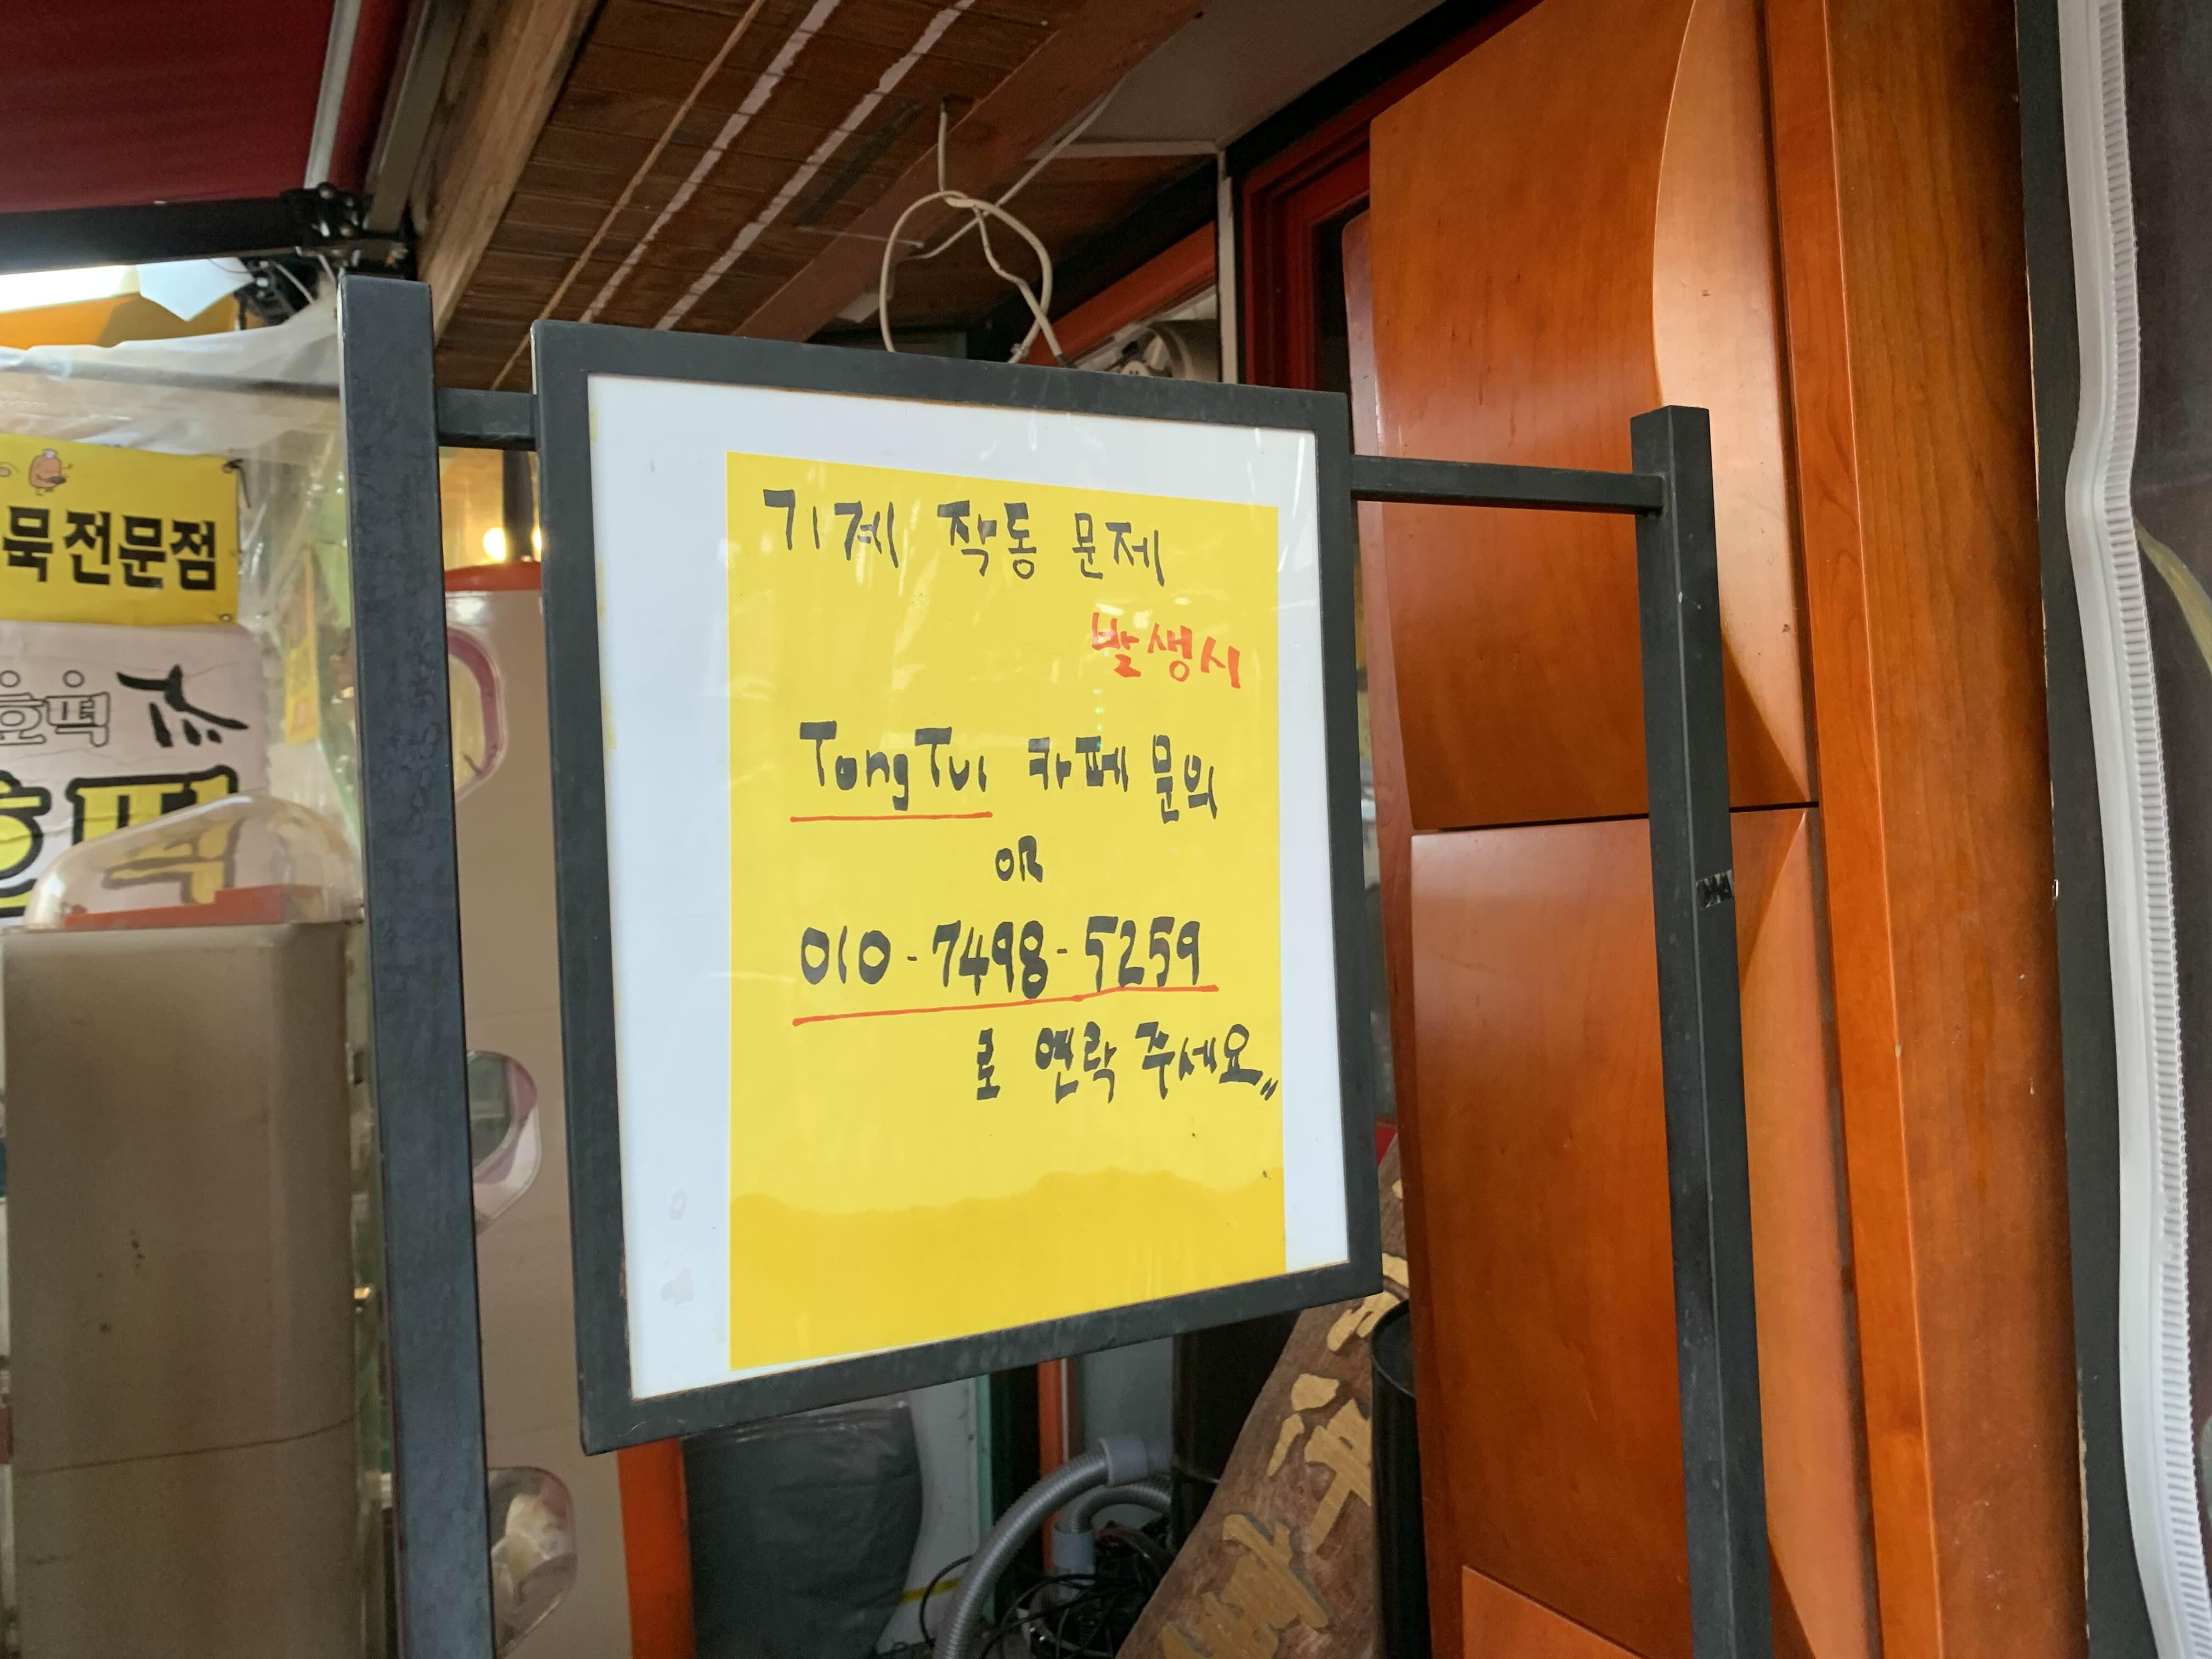 기계 작동 문제
발생시
TongTui 카페 문의
OR
010-7498-5259
로 연락 주세요〃
묵전문점
호떡
호떡